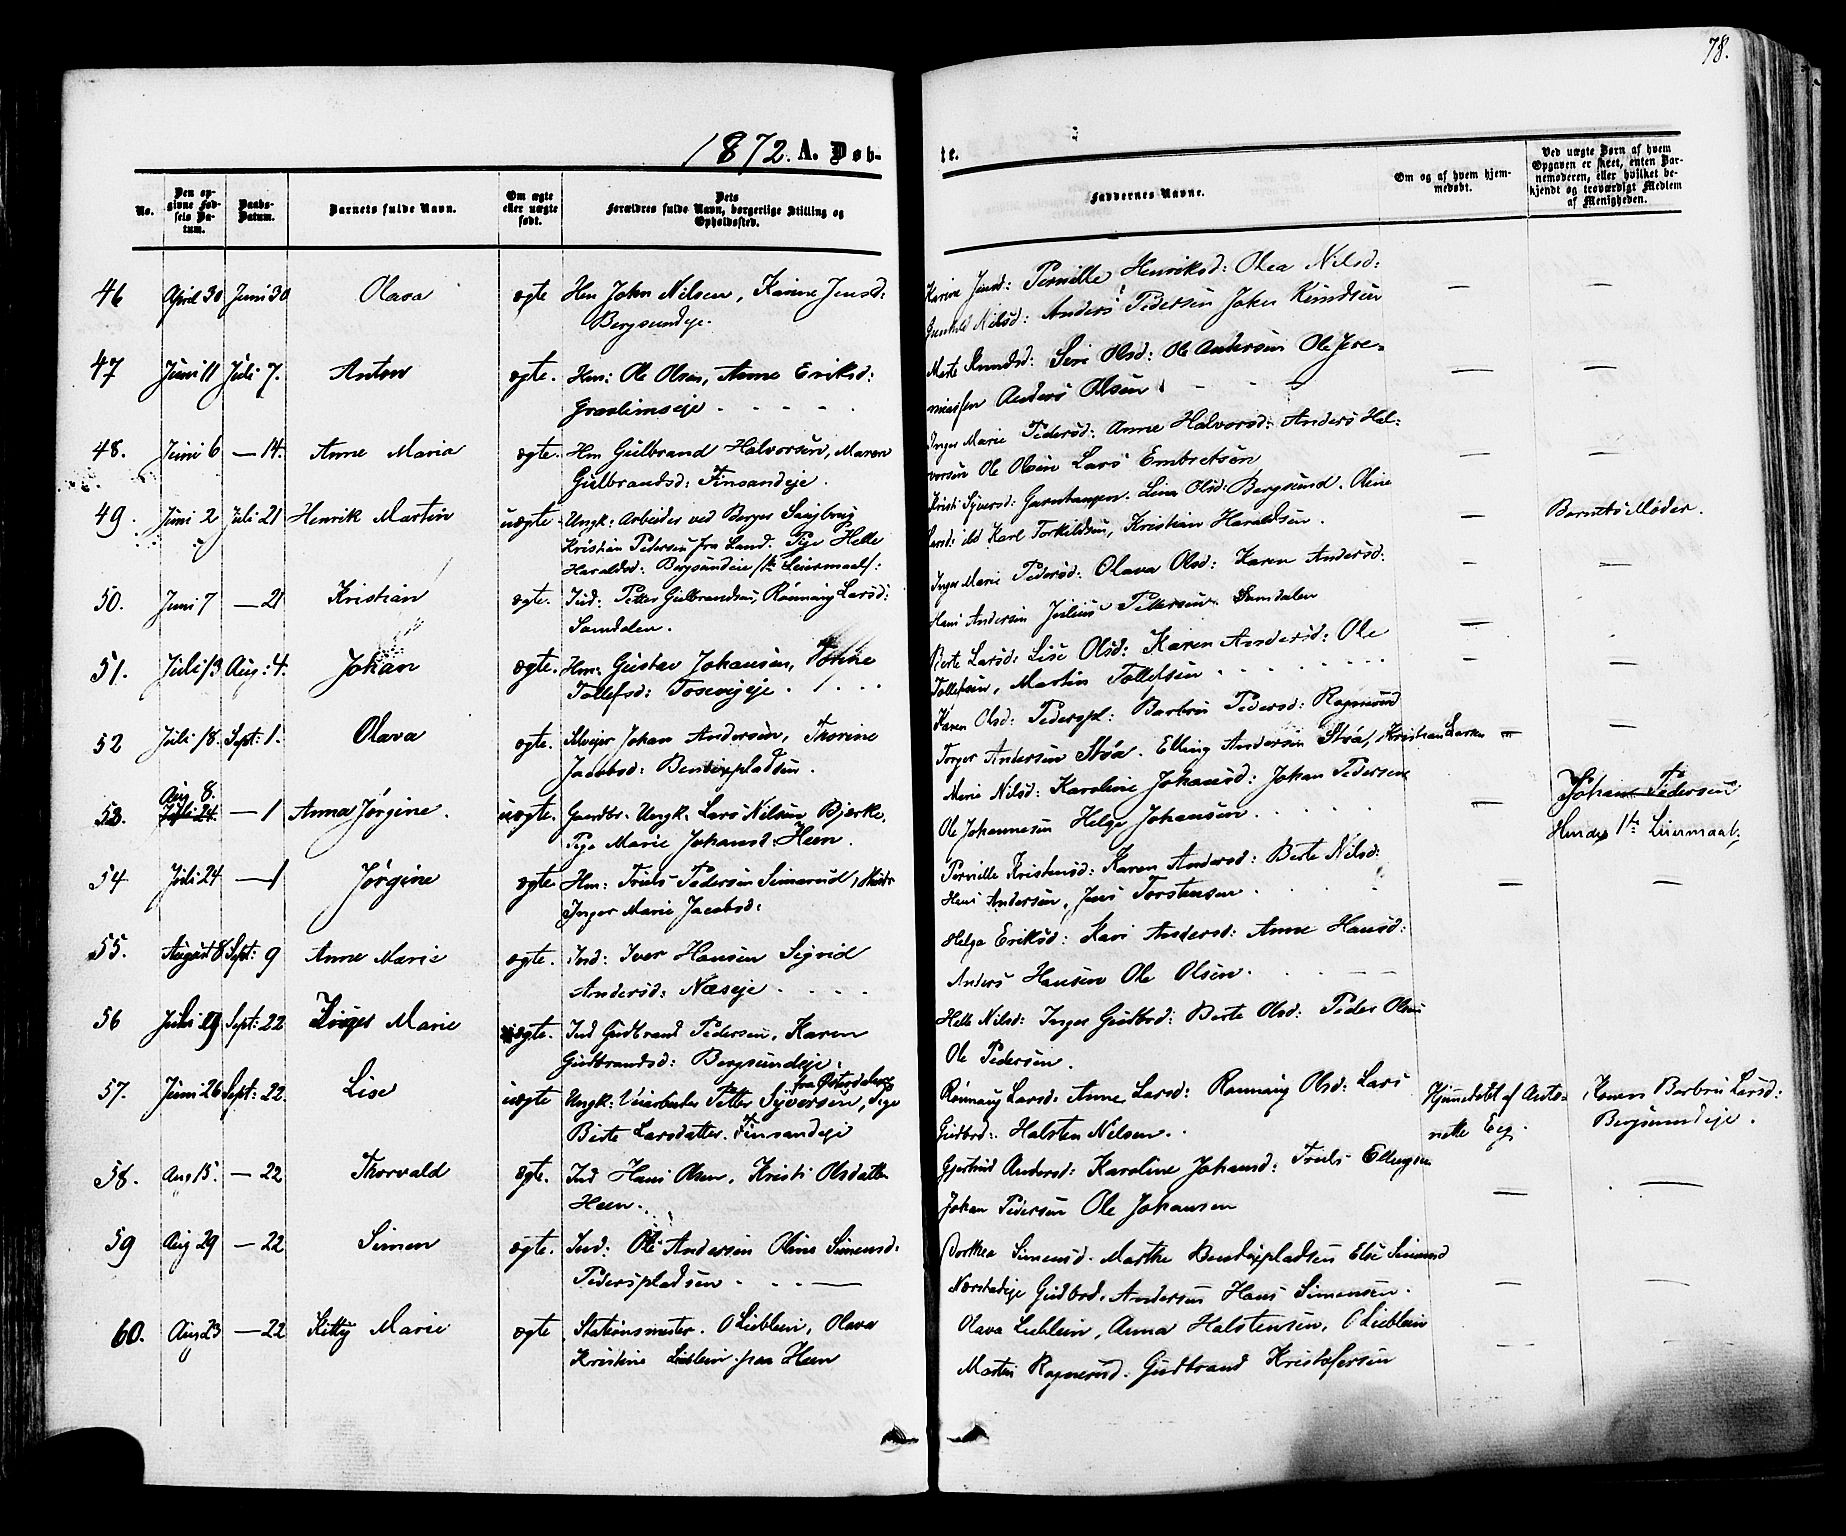 78.
1872. A. Døb-
te.
No.
Den opgivne Fødsels Datum.
Daabs-Datum.
Barnets fulde Navn.
Om ægte eller uægte født.
Dets Forældres fulde Navn, borgerlige Stilling og Opholdssted.
Faddernes Navne.
Om og af hvem hjemmedøbt.
Ved uægte Børn af hvem Opgaven er skeet, enten Barnemoderen, eller hvilket bekjendt og troværdigt Medlem af Menigheden.
46 April 30 Juni 30 Olava ægte Hm John Nilsen, Karine Jensd: Karine Jensd: Pernille Henriksd: Olea Nilsd: — —
Bergsundeje. Gunhild Nilsd: Anders Pedersen Johan Knudsen
47 Juni 11 Juli 7. Anton ægte. Hm: Ole Olsen, Anne Eriksd: Marte Knudsd: Siri Olsd: Ole Andersen Ole Jere- — —
Græslimseje . - - - - miassen Anders Olsen
48. Juni 6 — 14. Anne Maria ægte. Hm Gulbrand Halvorsen, Maren Inger Marie Pedersd: Anne Halvorsd: Anders Hal- — —
Gulbrandsd: Finsandeje. vorsen Ole Olsen Lars Embretsen
49. Juni 2 Juli 21 Henrik Martin uægte. Ungk: Arbeider ved Berger Saugbrug Kristi Syversd: Lina Olsd: Bergsund. Oline — Barnets Moder.
Kristian Pedersen fra Land. Pige Helle Larsd: Karl Torkildsen, Kristian Haraldsen.
Haraldsd: Bergsundeie 1te Leiermaal:
50. Juni 7 — 21 Kristian ægte. Ind: Petter Gulbrandsen, Rønnaug Larsd: Inger Marie Pedersd: Olava Olsd: Karen Andersd: —
Samdalen. Hans Andersen Julius Pettersen Samdalen —
51. Juli 13 Aug: 4. Johan ægte. Hm: Gustav Johansen, Berte Larsd: Lise Olsd: Karen Andersd: Ole — —
Tollefsd: Tosevigeje. Tollefsen, Martin Tollefsen
52 Juli 18. Sept: 1. Olava ægte. Selvejer Johan Andersen, Thorine Karen Olsd: Pederspl: Barbro Pedersd: Ragnerud —
Jacobsd: Bentixpladsen. Torger Andersen Støa. Elling Andersen Støa, Kristian Larsen —
53. Aug 8. Juli 24. — 1 Anna Jørgine. uægte. Gaardbr. Ungk. Lars Nilsen Bjerke, Marie Nilsd: Karoline Johansd: Johan Pedersen — Johan Pedersen
Pige Marie Johansd: Heen. Ole Johannesen Helge Johansen. Hendes 1te Leiermaal,
54 Juli 24 — 1 Jørgine ægte Hm: Truls Pedersen Simerud, Pernille Kristensd: Karen Andersd: Berte Nilsd: — —
Inger Marie Jacobsd: Hans Andersen, Jens Torstensen.
55. August 8 Sept: 9 Anne Marie ægte. Ind: Iver Hansen Sigrid Helga Eriksd: Kari Andersd: Anne Hansd:
Andersd: Næseje . - - - - Anders Hansen Ole Olsen.
56 Juli 19 Sept: 22 Inger Marie ægte. Ind Gudbrand Pedersen, Karen Helle Nilsd: Inger Gudbrd: Berte Olsd: Peder Olsen
Gudbrandsd: Bergsundeje. Ole Pedersen.
57. Juni 26 Sept: 22. Lise uægte Ungk: Veiarbeider Petter Syversen fra Østerdalen, Pige Rønnaug Larsd: Anne Larsd: Rønnaug Olsd: Lars Hjemmedøbt af Anto- Konen Barbro Larsd:
Berte Larsdatter. Finsandeje Gudbrd: Halsten Nilsen. nette Eeg. Bergsundeje.
58. Aug 15. — 22 Thorvald ægte. Ind Hans Olsen, Kristi Olsdatter Gjertrud Andersd: Karoline Johansd: Truls Ellingsen — —
Heen. Johan Pedersen Ole Johansen
59 Aug 29 — 22 Simen ægte. Ind: Ole Andersen Oline Simensd: Dorthea Simensd. Marthe Bentixpladsen Else Simensd
Pederspladsen. Næristadeje Gudbrd. Andersen Hans Simensen. — —
60. Aug 23 — 22 Kitty Marie ægte Stationsmester. O Lieblein, Olava Olava Lieblein, Anna Halstensen, O Lieblein
Kristine Lieblein. paa Heen Martin Ragnerud. Gudbrand Kristofersen — —